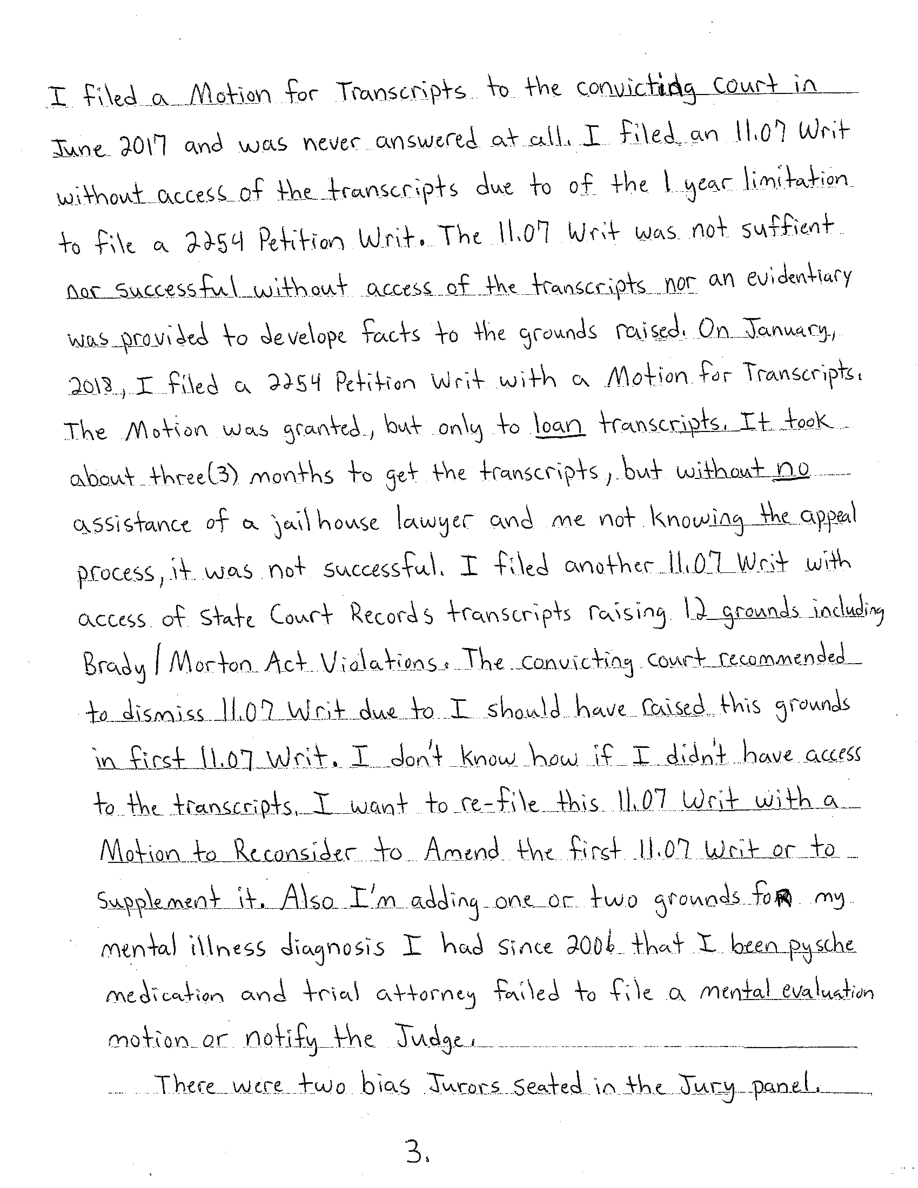 I filed a Motion for Transcripts to the convicting court in
June 2017 and was never answered at all. I filed an 11.07 Writ
without access of the transcripts due to of the 1 year limitation
to file a 2254 Petition Writ. The 11.07 Writ was not suffient
nor successful without access of the transcripts nor an evidentiary
was provided to develope facts to the grounds raised. On January,
2018, I filed a 2254 Petition Writ with a Motion for Transcripts.
The Motion was granted, but only to loan transcripts. It took
about three(3) months to get the transcripts, but without no
assistance of a jailhouse lawyer and me not knowing the appeal
process, it was not successful. I filed another 11.07 Writ with
access of State Court Records transcripts raising 12 grounds including
Brady/Morton Act Violations. The convicting court recommended
to dismiss 11.07 Writ due to I should have raised this grounds
in first 11.07 Writ. I don't know how if I didn't have access
to the transcripts. I want to re-file this 11.07 Writ with a
Motion to Reconsider to Amend the first 11.07 Writ or to
Supplement it. Also I'm adding one or two grounds foR my
mental illness diagnosis I had since 2006 that I been pysche
medication and trial attorney failed to file a mental evaluation
motion or notify the Judge.
There were two bias Jurors seated in the Jury panel.
3.